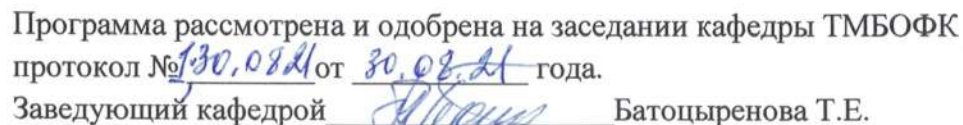 Программа рассмотрена и одобрена на заседании кафедры ТМБОФК
протокол №1.30.0821 от 30.08.21 года.
Заведующий кафедрой Батоцыренова Т.Е.